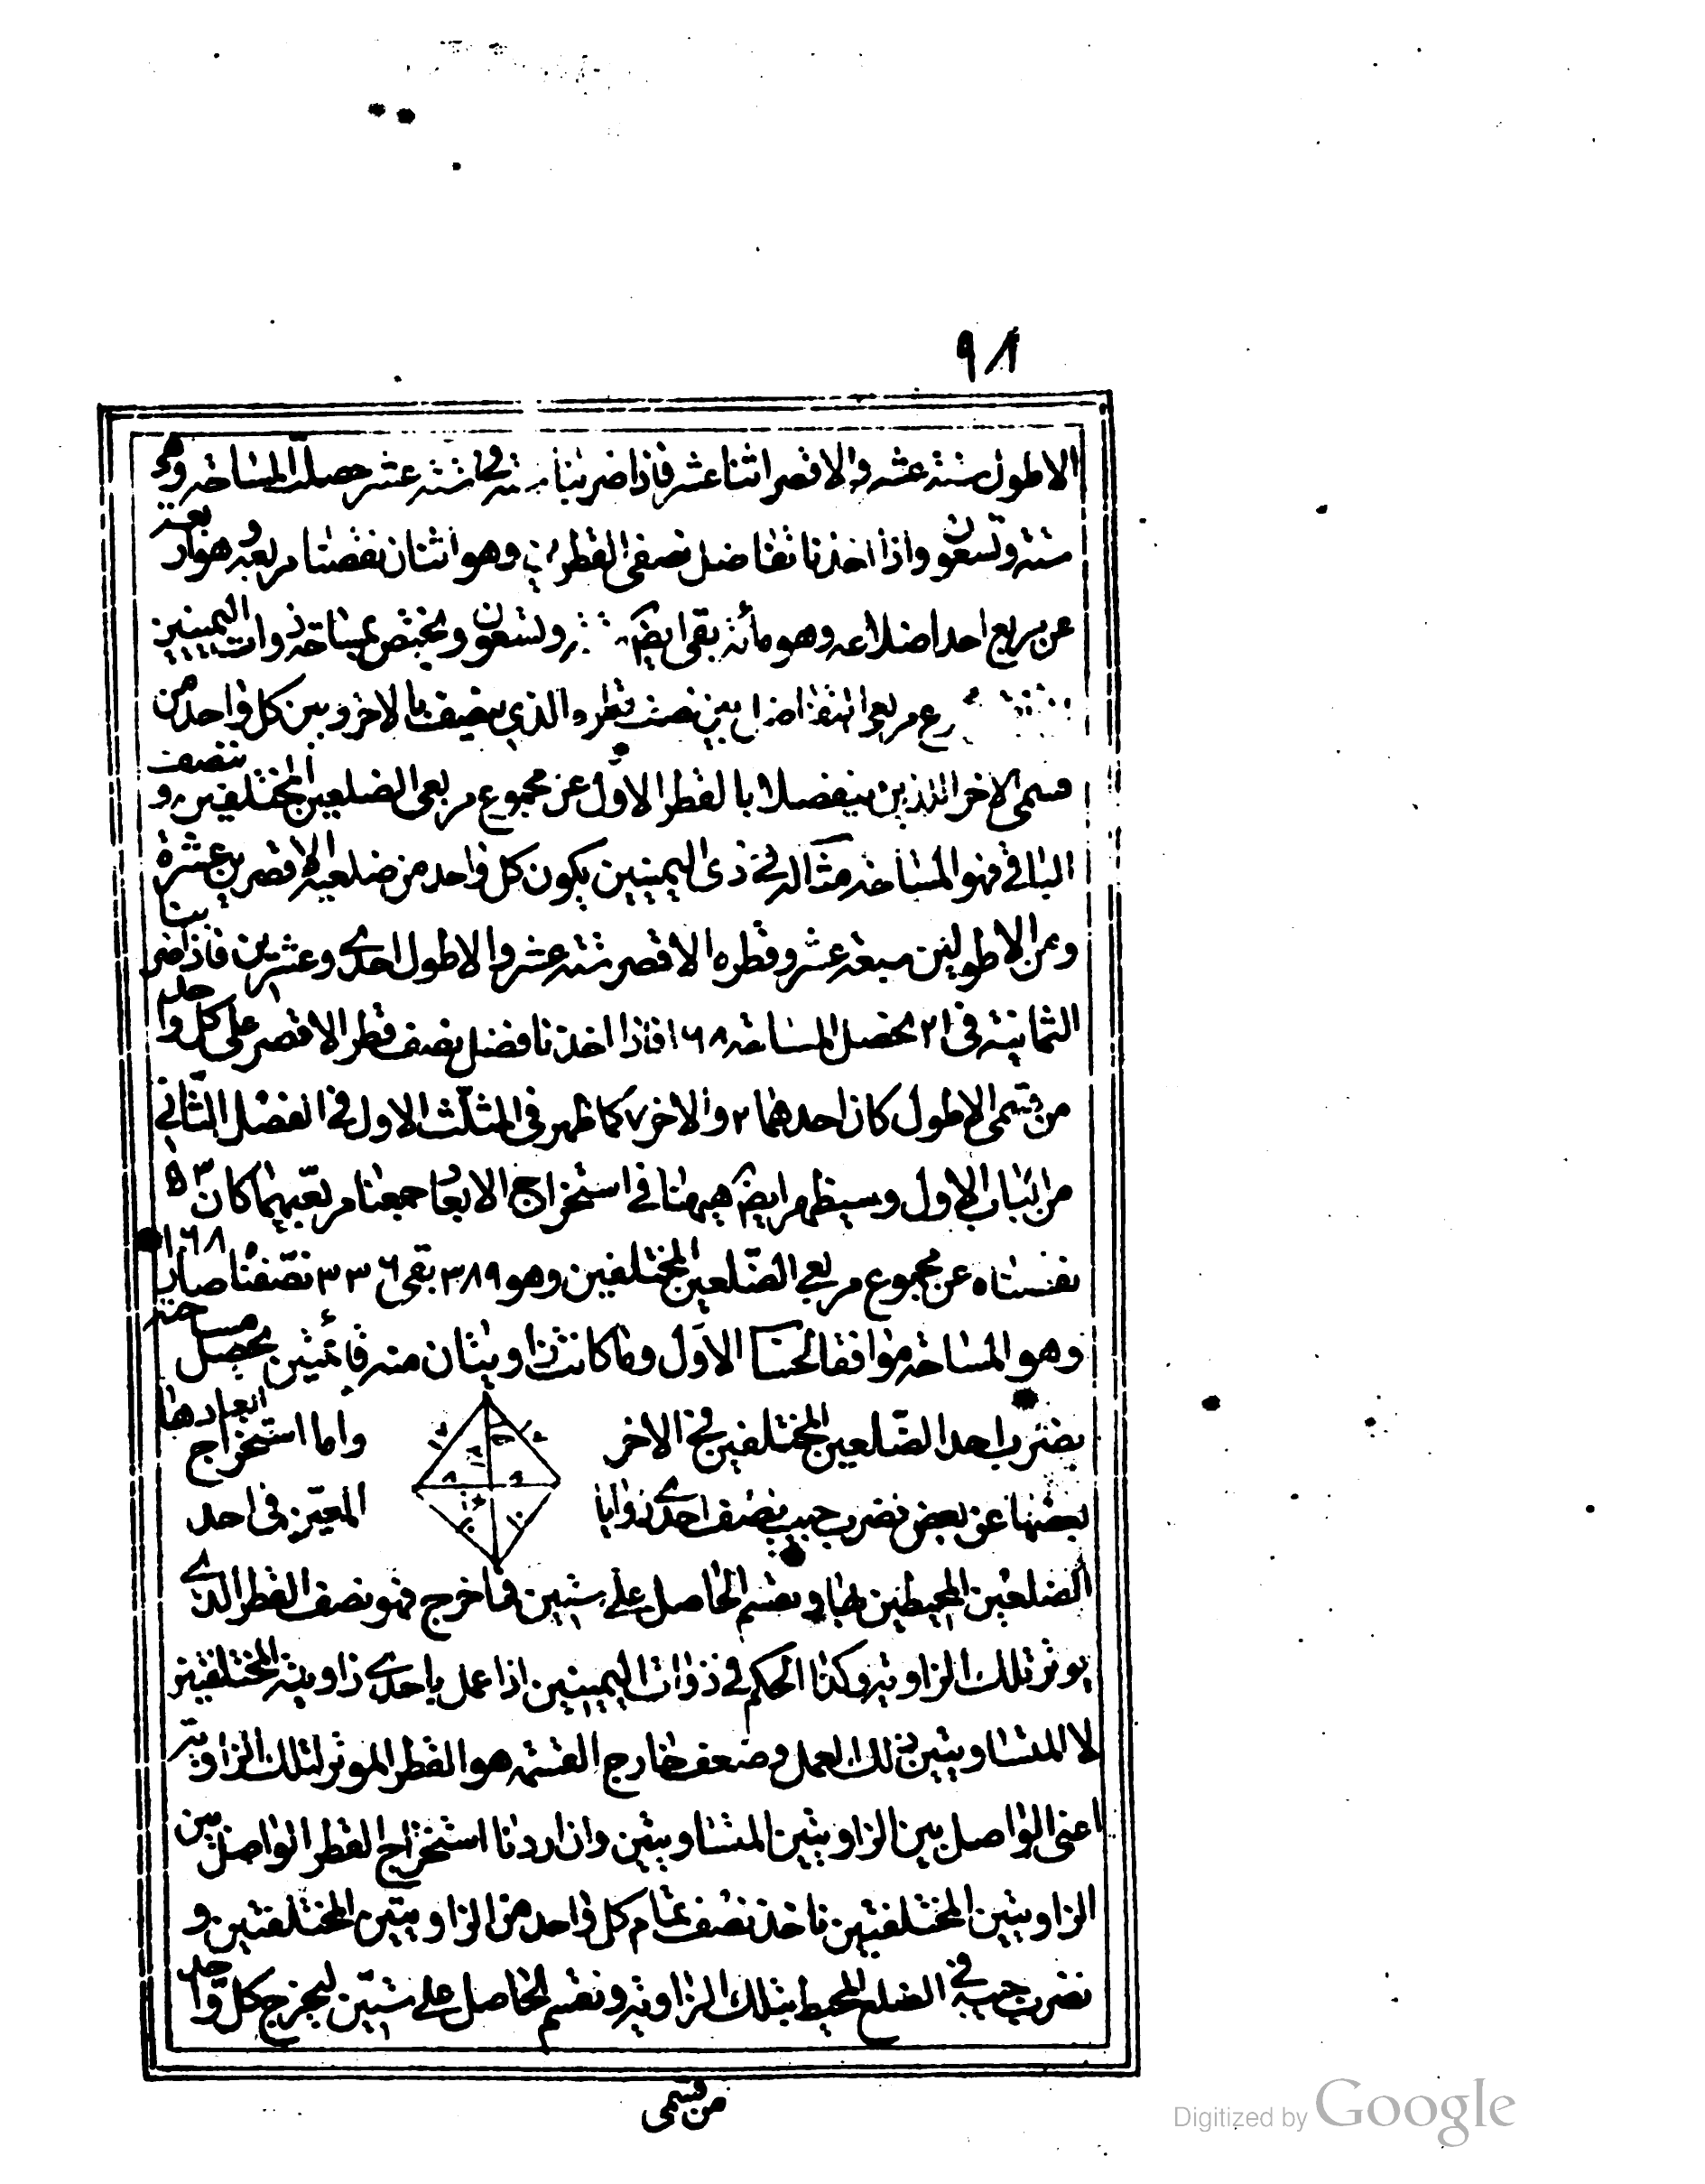 ٩٨
الاطول ستة عشر والاقصر اثنا عشر فاذا ضربنا ستة فى ستة عشر حصلت المساحة وهى
ستة وتسعون واذا اخذنا تفاضل نصفى القطرين وهو اثنان نقصنا مربعه وهو اربعة
عن مربع احد اضلاعه وهو مائة بقى ايضا ستة وتسعون ويختص بمساحة ذوات اليمينين
مربعى التفاضل بين نصف قطره الذى يتنصف بالاخر وبين كل واحد من
قسمى الاخر اللذين ينفصلا بالقطر الاول عن مجموع مربعى الضلعين المختلفين وتنصف
الباقى فهو المساحة مثاله فى ذى اليمينين يكون كل واحد من ضلعيه الاقصرين عشرة
ومن الاطولين سبعة عشر وقطره الاقصر ستة عشر والاطول احدى وعشرين فاذا ضربنا
الثمانية فى ٢١ يحصل المساحة ١٦٨ فاذا اخذنا فضل نصف قطر الاقصر على كل واحد
من قسمى الاطول كان احدهما ٢ والاخر ٧ كما ظهر فى المثلث الاول فى الفصل الثانى
من الباب الاول وسيظهر ايضا هيهنا فى استخراج الابعاد جمعنا مربعيهما كان ٥٣
نقصناه عن مجموع مربعى الضلعين المختلفين وهو ٣٨٩ بقى ٣٣٦ نصفناه صار ١٦٨
وهو المساحة موافقا لحساب الاول وما كانت زاويتان منه قائمتين يحصل مساحته
بضرب احد الضلعين المختلفين فى الاخر واما استخراج ابعادها
بعضها عن بعض نضرب جيب نصف احدى زوايا المعين فى احد
الضلعين المحيطين بها ونقسم الحاصل على ستين فما خرج فهو نصف القطر الذى
يوتر تلك الزاوية وكذا الحكم فى ذوات اليمينين اذا عمل باحدى زاويتيه المختلفتين
لا المتساويتين ذلك العمل وضعف خارج القسمة هو القطر الموتر لتلك الزاوية
اعنى الواصل بين الزاويتين المتساويتين وان اردنا استخراج القطر الواصل بين
الزاويتين المختلفتين ناخذ نصف تمام كل واحد من الزاويتين المختلفتين و
نضرب جيبه فى الضلع المحيط بتلك الزاوية ونقسم الحاصل على ستين ليخرج كل واحد
من قسمى
Digitized by Google